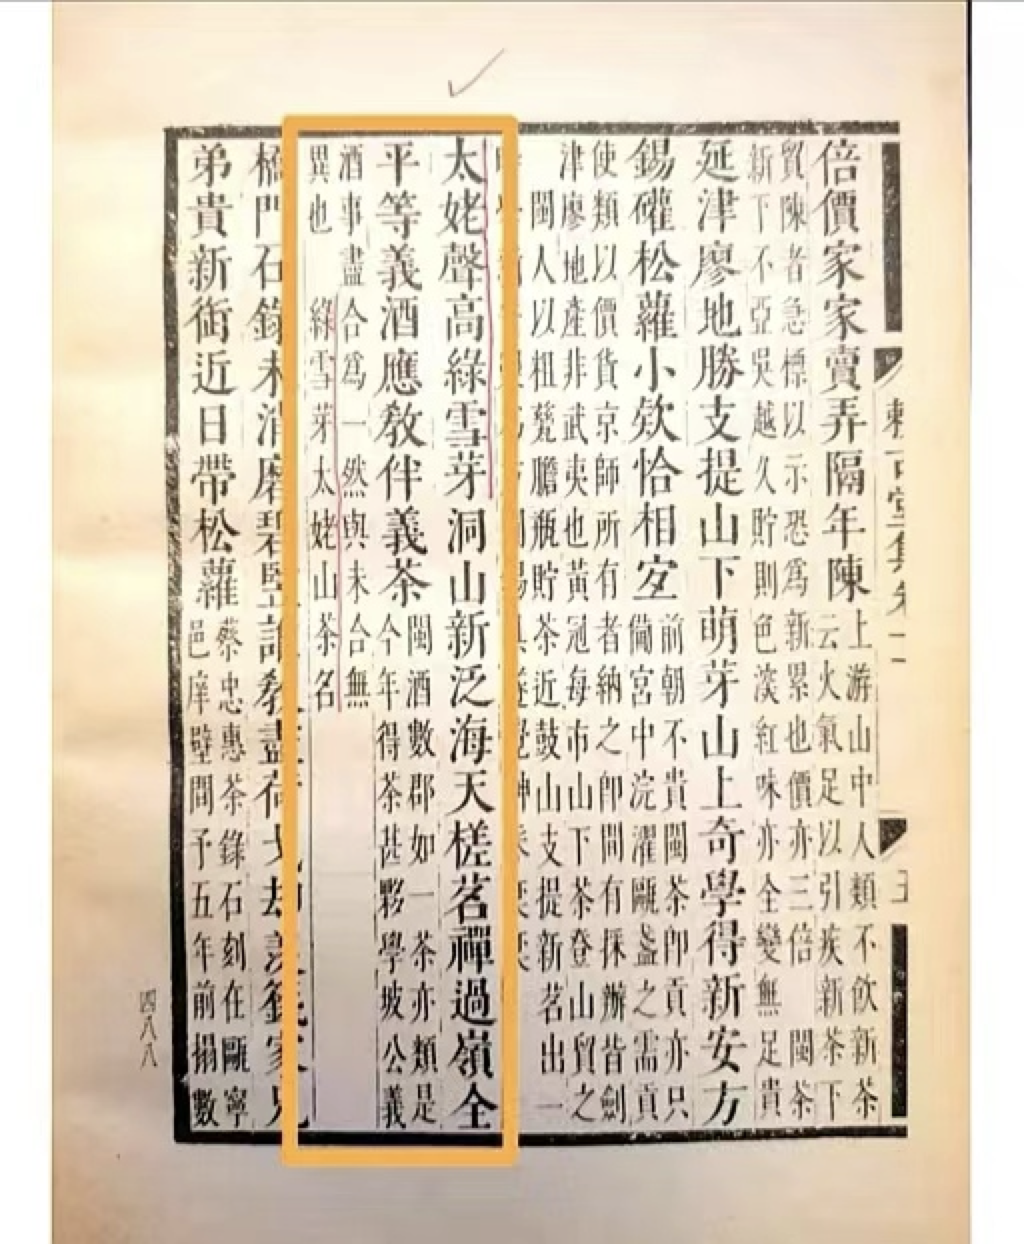 倍價家家賣弄隔年陳
上游山中人類不飲新茶
云火氣足以引疾新茶下
貿陳者急標以示恐爲新累也價亦三倍 閩茶
新下不亞吳越久貯則色淡紅味亦全變無足貴
延津廖地勝支提山下萌芽山上奇學得新安方
錫礶松蘿小欵恰相宐
前朝不貴閩茶卽貢亦只
備宮中浣濯甌盞之需貢
使類以價貨京師所有者納之卽間有採辦皆劍
津廖地產非武夷也黃冠每市山下茶登山貿之
閩人以粗甆膽瓶貯茶近鼓山支提新茗出一
太姥聲高綠雪芽洞山新泛海天槎茗禪過嶺全
平等義酒應敎伴義茶
閩酒數郡如一茶亦類是
今年得茶甚夥學坡公義
酒事盡合爲一然與未合無
異也 綠雪芽太姥山茶名
橋門石錄未消磨碧豎誰敎盡荷戈却羨籛家兄
弟貴新銜近日帶松蘿
蔡忠惠茶錄石刻在甌寧
邑庠壁間予五年前搨數
四八八